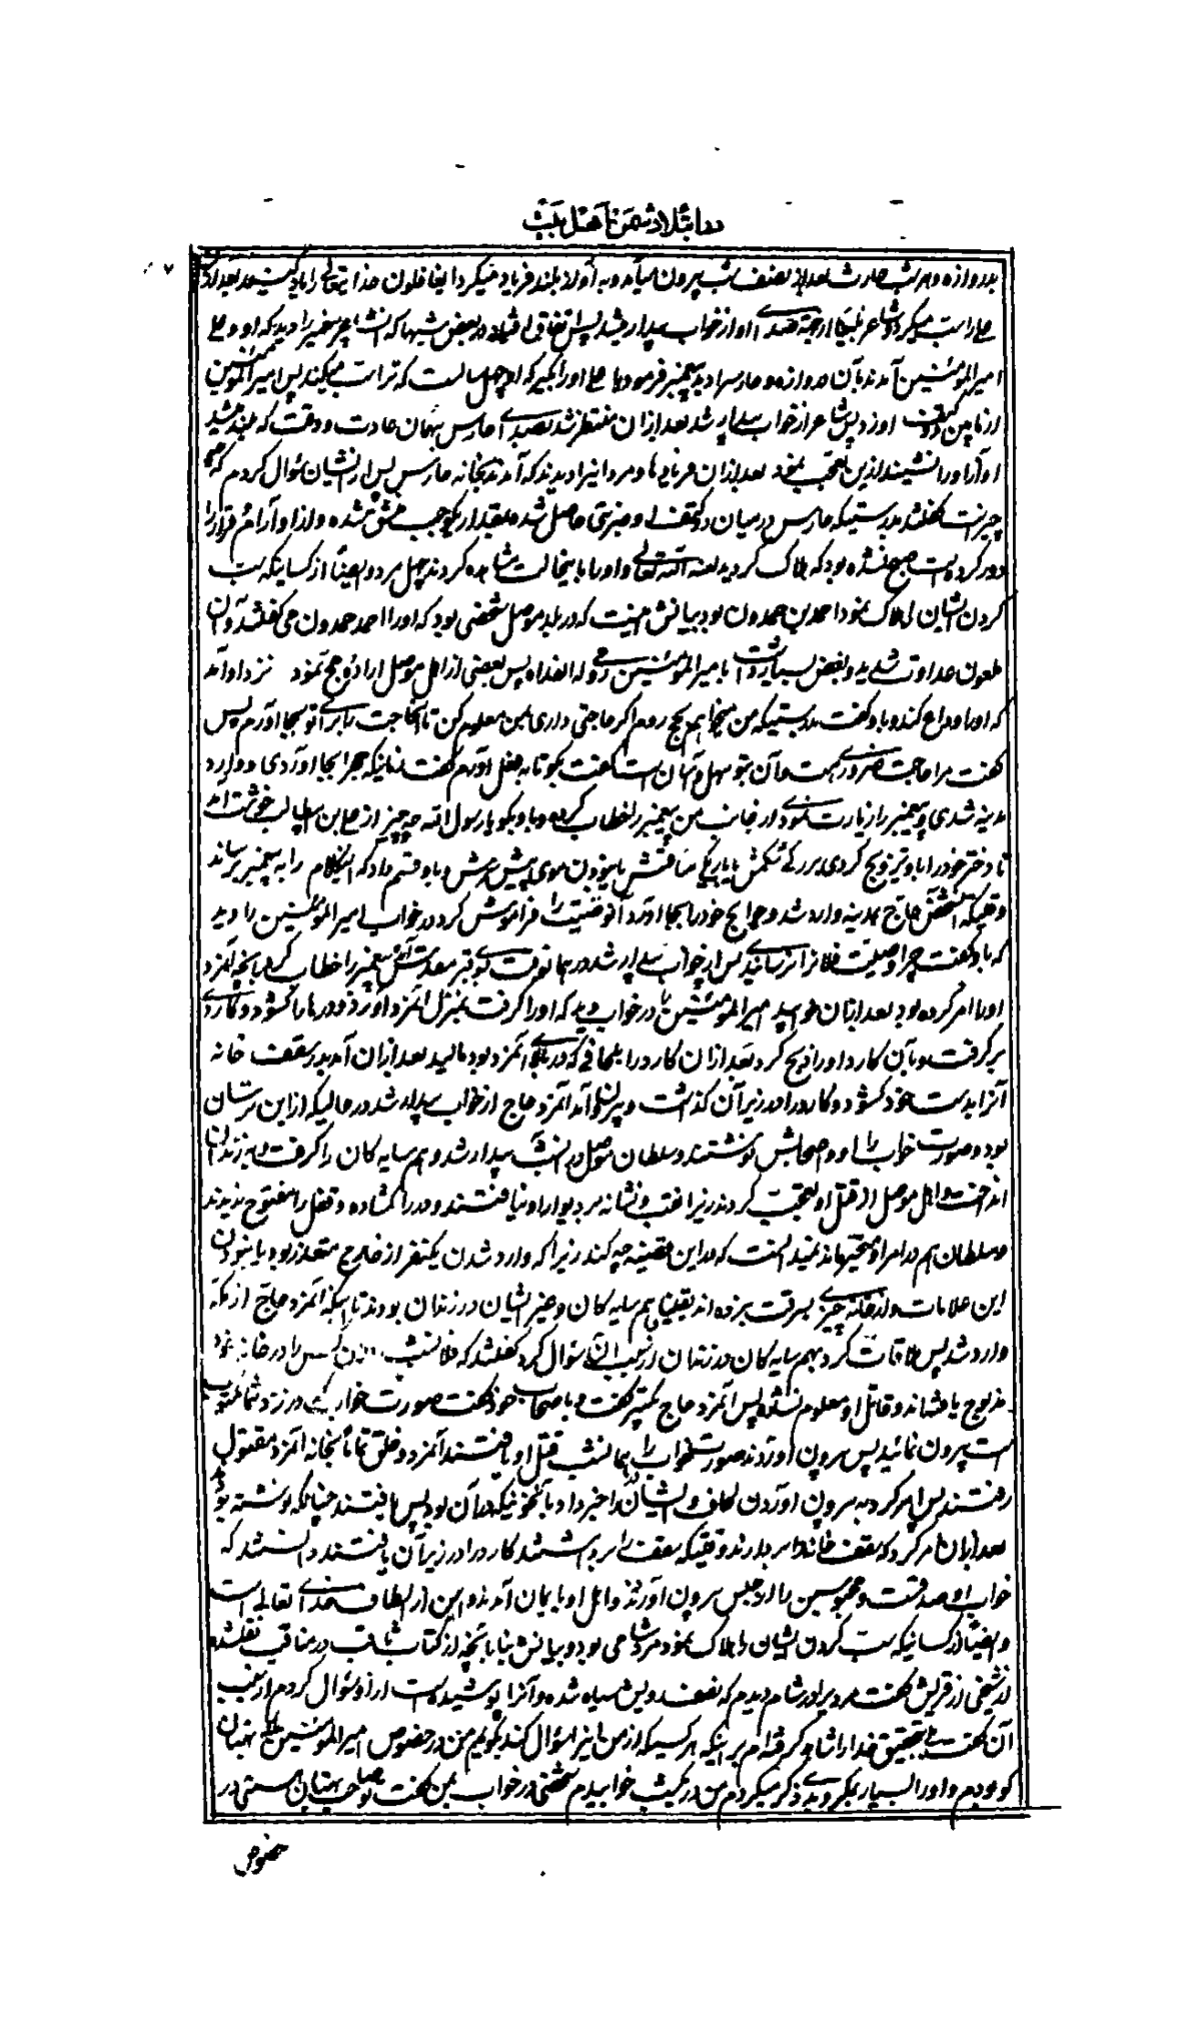 در ابتلاء دشمن با اهل بیت
۷
بدروازه و هر شب حارث بعد از نصف شب بیرون میآمد و به آواز بلند فریاد میکرد ایغافلون خدایتعالی را یاد کنید بعد از آن
علی را سب میکرد و شاعر از جهة صدای او از خواب بیدار میشد پس اتفاق افتاد در بعض شبها که شاعر پیغمبر را دید که او و علی
امیرالمؤمنین آمدند بآن دروازه و حارس را دید پیغمبر فرمود یا علی او را بگیر که او چهل سالست که ترا سب میکند پس امیرالمؤمنین
او زد پس شاعر از خواب بیدار شد بعد از آن منتظر شد بصدای حارس بهمان عادت و وقت که میشنید
او را نشنید از این تعجب نمود بعد از آن فریادها و مردانیرا دیدند که آمدند بخانه حارس پس از ایشان سؤال کردم که چه
چیز است گفتند بدرستیکه حارس در میان دو کتف او ضربتی حاصل شده بمقدار یکوجب منشق شده و از او آرام و قرار را
دور کرده است صبح نشده بود که هلاک گردید لعنه الله تعالی و او را باینحالت مشاهده کردند چهل مرد و ایضاً از کسانیکه سب
کردن ایشان را هلاک نمود احمد بن حمدون بود بیانش اینست که در بلد موصل شخصی بود که او را احمد حمدون می گفتند و آن
ملعون عداوت شدید و بغض بسیار داشت با میرالمؤمنین روحی له الفداء پس بعضی از اهل موصل اراده حج نمود نزد او آمد
که او را وداع کند و باو گفت بدرستیکه من میخواهم بحج روم اگر حاجتی داری بمن معلوم کن تا آنحاجت را برای تو بجا آورم پس
گفت مرا حاجت ضروری هست و آن بتو سهل و آسان است گفت بگو تا بفعل آورم گفت زمانیکه حج را بجا آوردی و وارد
مدینه شدی و پیغمبر را زیارت نمودی از جانب من پیغمبر را خطاب کرده و باو بگو یا رسول الله چه چیز از علی بن ابیطالب خوشت آمد
تا دختر خود را باو تزویج کردی بزرگی شکمش یا باریکی ساقش یا نبودن موی پیش سرش و باو قسم داد که اینکلام را به پیغمبر برساند
وقتیکه آنشخص حاج بمدینه وارد شد و حوایج خود را بجا آورد آنوصیت را فراموش کرد در خواب امیرالمؤمنین را دید
که باو گفت چرا وصیت فلانرا نرسانیدی پس از خواب بیدار شد در همانوقت بسوی قبر مقدسش آمد پیغمبر را خطاب کرد بآنچه آنمرد
او را امر کرده بود بعد از آن خوابید امیرالمؤمنین را در خواب دید که او را گرفت بمنزل آنمرد آورد و درها را گشود و کاردی
برگرفت و بآن کارد او را ذبح کرد بعد از آن کارد را بلحافی که در بالای آنمرد بود مالید بعد از آن آمد بدر سقف خانه
آنرا بدست خود گشود و کارد را در زیر آن گذاشت و بیرون آمد آنمرد حاج از خواب بیدار شد در حالیکه از این ترسان
بود و صورت خواب را او و اصحابش نوشتند و سلطان موصل در آنشب بیدار شد و همسایه کان را گرفت و بزندان
انداخت و اهل موصل از قتل او تعجب کردند زیرا نقب و نشانه بر دیوار او نیافتند و در را گشاده و قفل را مفتوح ندیدند
و سلطان هم در امر او متحیر ماند نمیدانست که در این قضیه چه کند زیرا که وارد شدن یکنفر از خارج متعذر بود با نبودن
این علامات و از خانه چیزی بسرقت نبرده اند یقیناً همسایه کان و غیر ایشان در زندان بودند تا اینکه آنمرد حاج از مکه
وارد شد پس ملاقات کرد بهمسایه کان در زندان از سبب آن سؤال کرد گفتند که فلانشب را در خانه خود
مذبوح یافتند و قاتل او معلوم نشد پس آنمرد حاج تکبیر گفت و باصحاب خود گفت صورت خواب که در نزد شما مکتوب
است بیرون نمائید پس بیرون آوردند صورت خواب را همانشب قتل او یافتند آنمرد و خلق تماماً بخانه آنمرد مقتول
رفتند پس امر کرد به بیرون آوردن لحاف و ایشان را خبر داد بآنخونیکه در آن بود پس یافتند چنانکه نوشته بود
بعد از آن امر کرد که سقف خانه را بردارند وقتیکه سقف را برداشتند کارد را در زیر آن یافتند دانستند که
خواب او صدقست و محبوسین را از حبس بیرون آوردند و اهل او بایمان آمدند و این از الطاف خدای تعالی است
و ایضاً از کسانیکه سب کردن ایشان را هلاک نمود مرد شامی بود و بیانش بنا بآنچه از کتاب ثاقب در مناقب نقلشده
از شخصی از قریش گفت مردیرا در شام دیدم که نصف رویش سیاه شده و آنرا پوشیده است از او سؤال کردم از سبب
آن گفت بلی بتحقیق خدا را شاهد گرفته ام بر اینکه هر کسیکه از من اینرا سؤال کند بگویم من در خصوص امیرالمؤمنین علی بهتان
گو بودم و او را بسیار بمکروه ذکر میکردم من در یکشب خوابیدم شخصی در خواب بمن گفت تو صاحب بهتان هستی در
خصوص